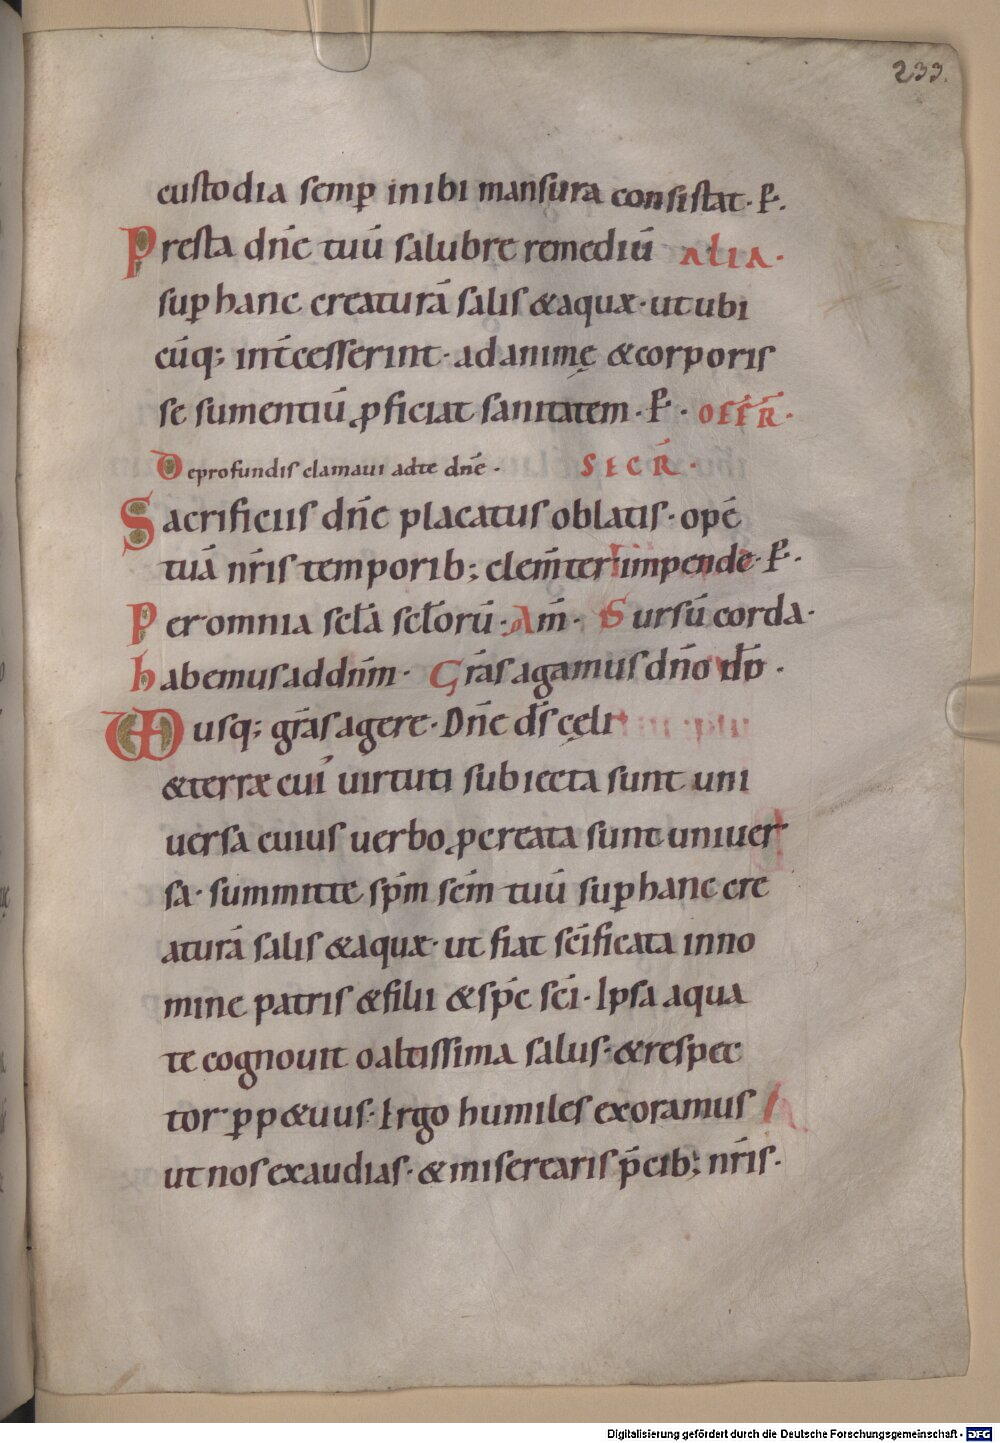 233.
custodia semp̄ inibi mansura consistat· P̄.
Presta dn̄e tuū salubre remediū ALIA·
sup̄ hanc creaturā salis &aquæ· ut ubi
cūq; int̄cesserint· ad animę &corporis
se sumentiū ꝓficiat sanitatem· P̄· OFF̄R̄·
De profundis clamaui adte dn̄e· SECR̄·
Sacrificiis dn̄e placatus oblatis· opē
tuā nr̄is temporib; clem̄ter impende· P̄·
Per omnia scl̄a scl̄orū· Am̄· Sursū corda·
habemus ad dn̄m· Gr̄as agamus dn̄o dō·
VD usq; gr̄as agere· Dn̄e ds̄ cęli
&terræ cui uirtuti subiecta sunt uni
uersa cuius uerbo ꝓcreata sunt uniuer
sa· summitte sp̄m scm̄ tuū sup̄ hanc cre
aturā salis &aquæ· ut fiat scīficata inno
mine patris &filii &sp̄c scī· Ipsa aqua
te cognouit o altissima salus· &respec
tor ꝑp&uus· Ergo humiles exoramus
ut nos exaudias· &miserearis p̄cib; nr̄is·
Digitalisierung gefördert durch die Deutsche Forschungsgemeinschaft - DFG